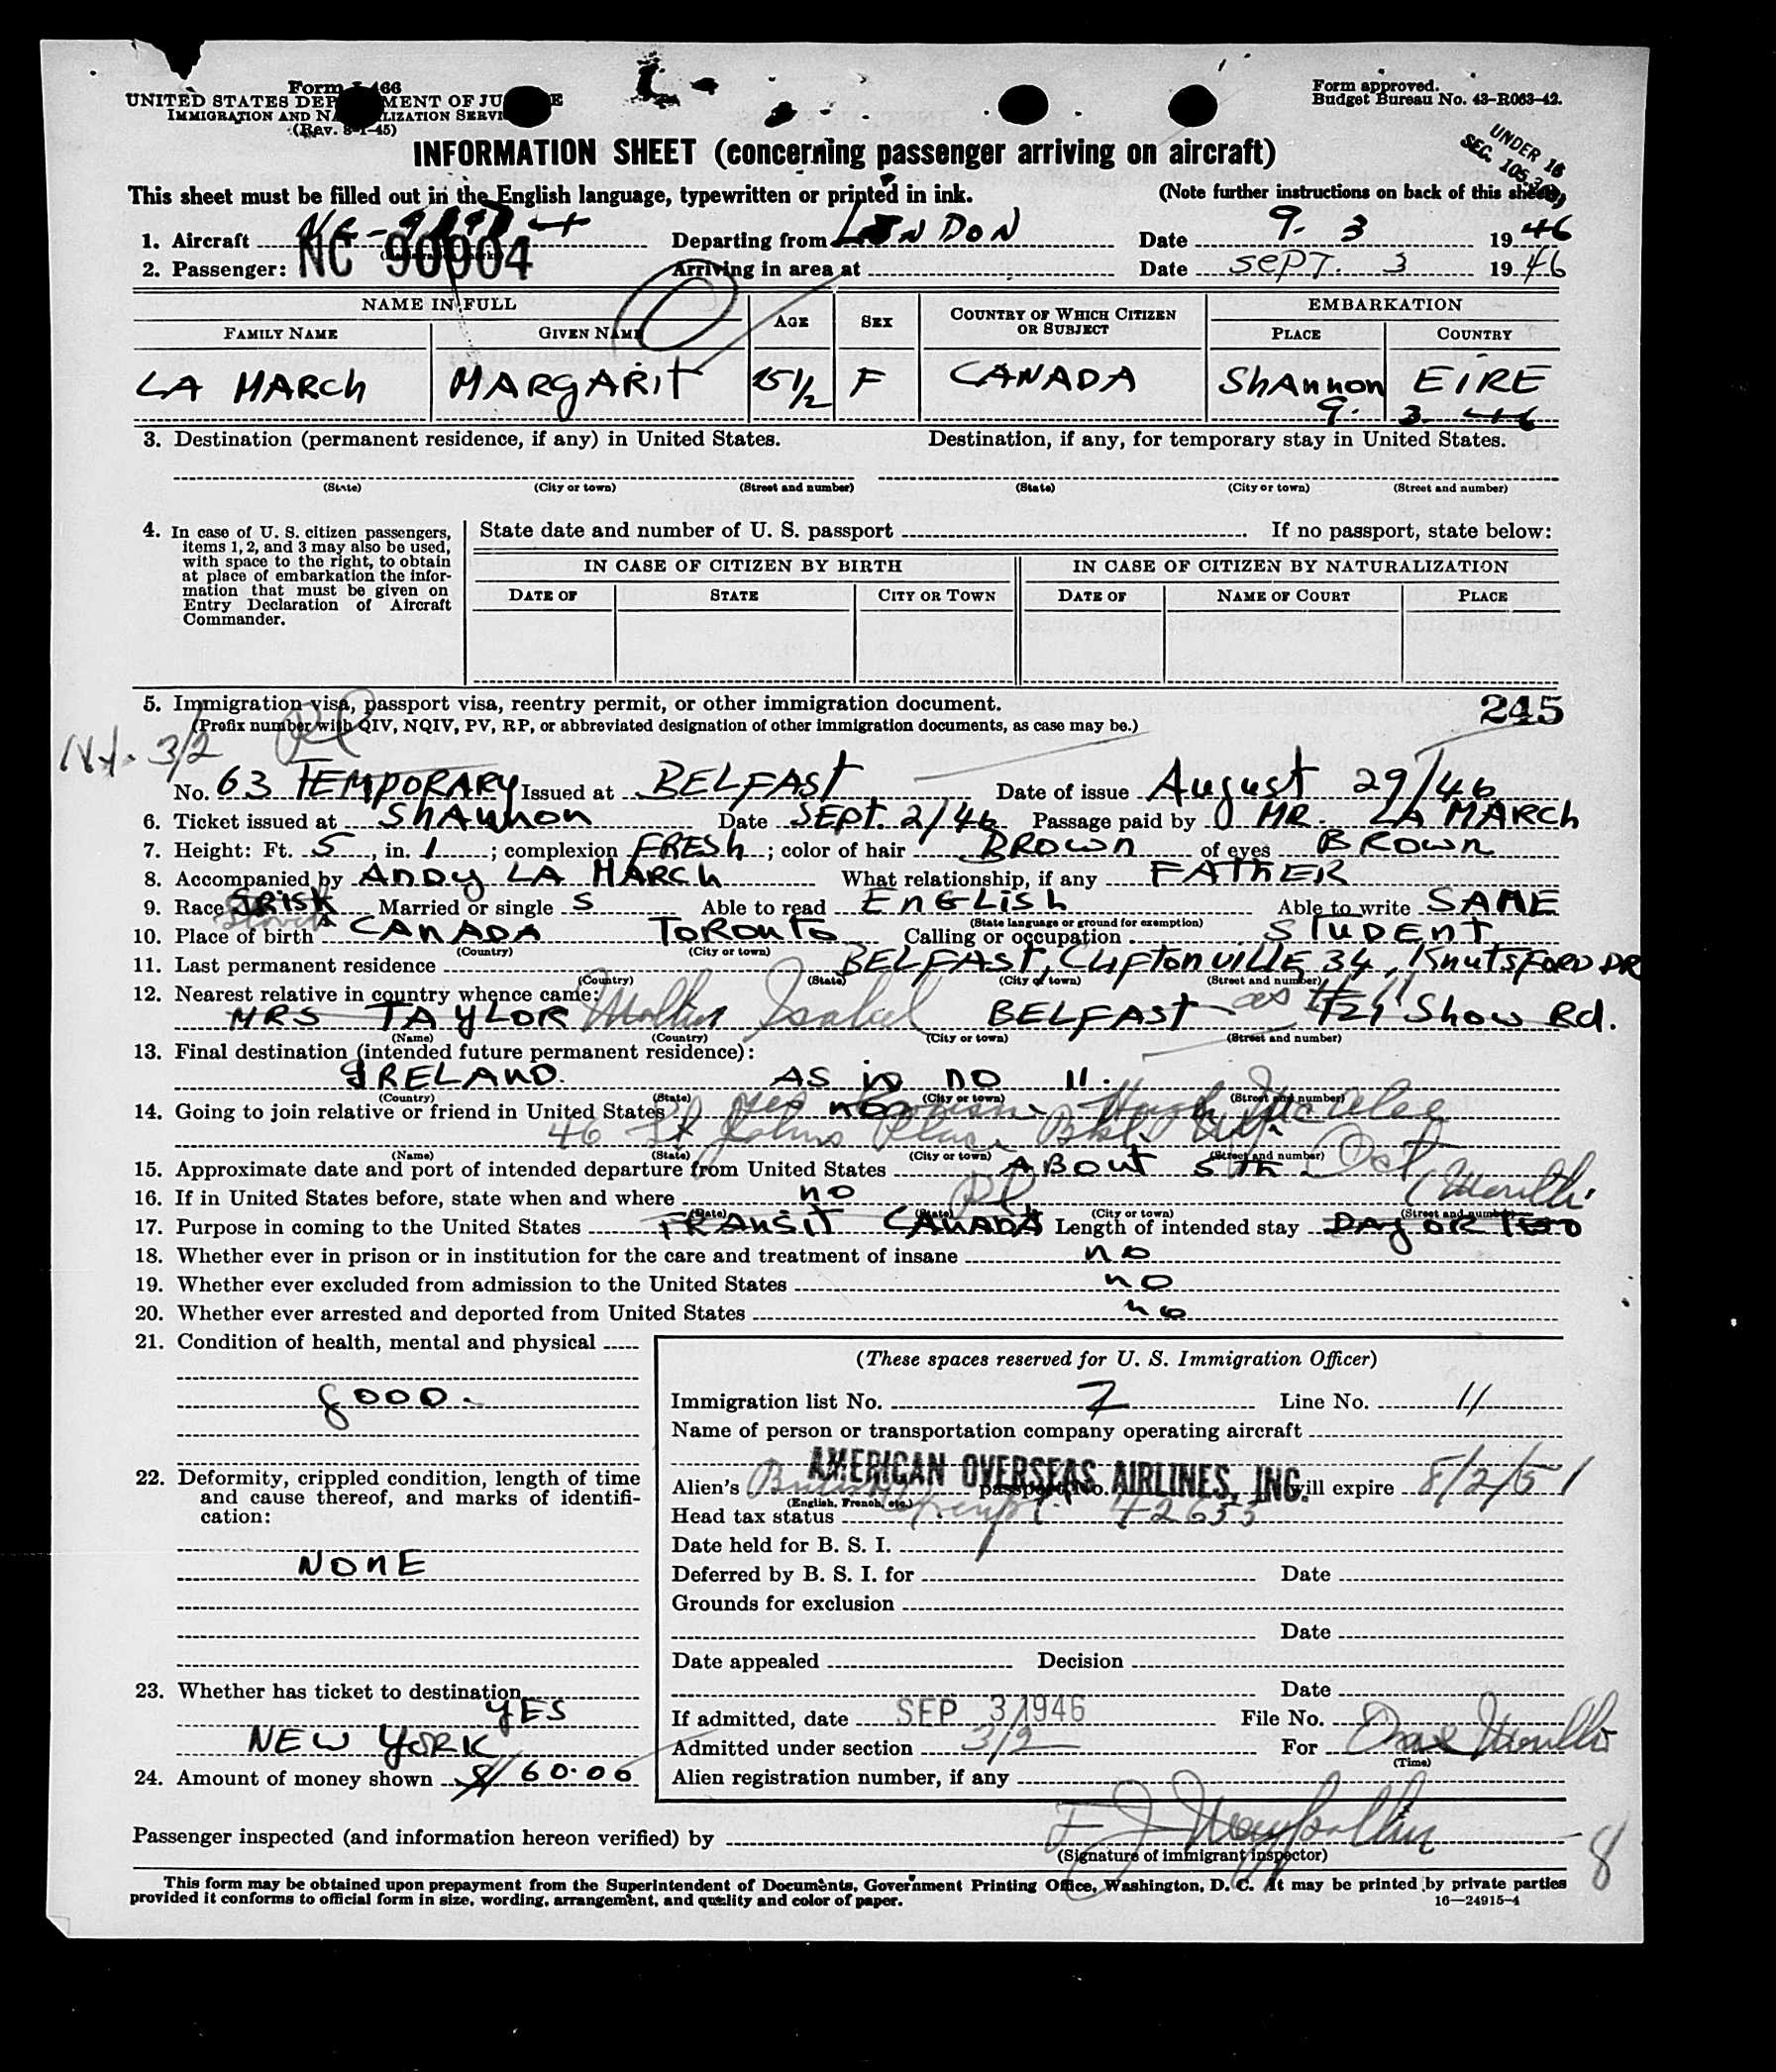 Form I-466
UNITED STATES DEPARTMENT OF JUSTICE
IMMIGRATION AND NATURALIZATION SERVICE
(Rev. 8-1-45)
Form approved.
Budget Bureau No. 43-R063-42.
INFORMATION SHEET (concerning passenger arriving on aircraft)
UNDER 16
SEC. 105.3
This sheet must be filled out in the English language, typewritten or printed in ink.
(Note further instructions on back of this sheet)
1. Aircraft NC 90904 Departing from LONDON Date 9. 3 1946
2. Passenger: Arriving in area at Date SEPT. 3 1946
NAME IN FULL AGE SEX COUNTRY OF WHICH CITIZEN OR SUBJECT EMBARKATION
FAMILY NAME GIVEN NAME PLACE COUNTRY
LA MARCH MARGARIT 15 1/2 F CANADA SHAnnon EIRE
9. 3 46
3. Destination (permanent residence, if any) in United States. Destination, if any, for temporary stay in United States.
(State) (City or town) (Street and number) (State) (City or town) (Street and number)
4. In case of U. S. citizen passengers, items 1, 2, and 3 may also be used, with space to the right, to obtain at place of embarkation the information that must be given on Entry Declaration of Aircraft Commander.
State date and number of U. S. passport If no passport, state below:
IN CASE OF CITIZEN BY BIRTH IN CASE OF CITIZEN BY NATURALIZATION
DATE OF STATE CITY OR TOWN DATE OF NAME OF COURT PLACE
5. Immigration visa, passport visa, reentry permit, or other immigration document. 245
(Prefix number with QIV, NQIV, PV, RP, or abbreviated designation of other immigration documents, as case may be.)
3/2
No. 63 TEMPORARY Issued at BELFAST Date of issue August 29/46
6. Ticket issued at SHAnnon Date SEPT. 2/46 Passage paid by MR. LA MARCH
7. Height: Ft. 5, in. 1; complexion FRESH; color of hair BROWN of eyes BROWN
8. Accompanied by ANDY LA MARCH What relationship, if any FATHER
9. Race IRISH Married or single S Able to read ENGLISH Able to write SAME
(State language or ground for exemption)
10. Place of birth CANADA TORONTO Calling or occupation STUDENT
(Country) (City or town)
11. Last permanent residence BELFAST, CLIFTONVILLE 34, KNUTSFORD DR
(Country) (State) (City or town) (Street and number)
12. Nearest relative in country whence came:
MRS TAYLOR Mother Isabel BELFAST as # 11 121 Show Rd.
(Name) (Country) (City or town) (Street and number)
13. Final destination (intended future permanent residence):
IRELAND. AS in no 11.
(Country) (State) (City or town) (Street and number)
14. Going to join relative or friend in United States no Hugh
46 St Johns Place
(Name) (State) (City or town) (Street and number)
15. Approximate date and port of intended departure from United States ABOUT 5TH Oct
16. If in United States before, state when and where no
(Date) (State) (City or town) (Street and number)
17. Purpose in coming to the United States TRANSIT CANADA Length of intended stay DAY OR TWO
18. Whether ever in prison or in institution for the care and treatment of insane no
19. Whether ever excluded from admission to the United States no
20. Whether ever arrested and deported from United States no
21. Condition of health, mental and physical
GOOD.
22. Deformity, crippled condition, length of time and cause thereof, and marks of identification:
NONE
23. Whether has ticket to destination
YES
NEW YORK
24. Amount of money shown $ 60.00
(These spaces reserved for U. S. Immigration Officer)
Immigration list No. 7 Line No. 11
Name of person or transportation company operating aircraft
AMERICAN OVERSEAS AIRLINES, INC.
Alien's British passport No. will expire 8/2/51
(English, French, etc.)
Head tax status exempt 42653
Date held for B. S. I.
Deferred by B. S. I. for Date
Grounds for exclusion
Date
Date appealed Decision
Date
If admitted, date SEP 3 1946 File No.
Admitted under section 3/2 For One Month
(Time)
Alien registration number, if any
Passenger inspected (and information hereon verified) by
(Signature of immigrant inspector)
8
This form may be obtained upon prepayment from the Superintendent of Documents, Government Printing Office, Washington, D. C. It may be printed by private parties
provided it conforms to official form in size, wording, arrangement, and quality and color of paper. 16—24915-4